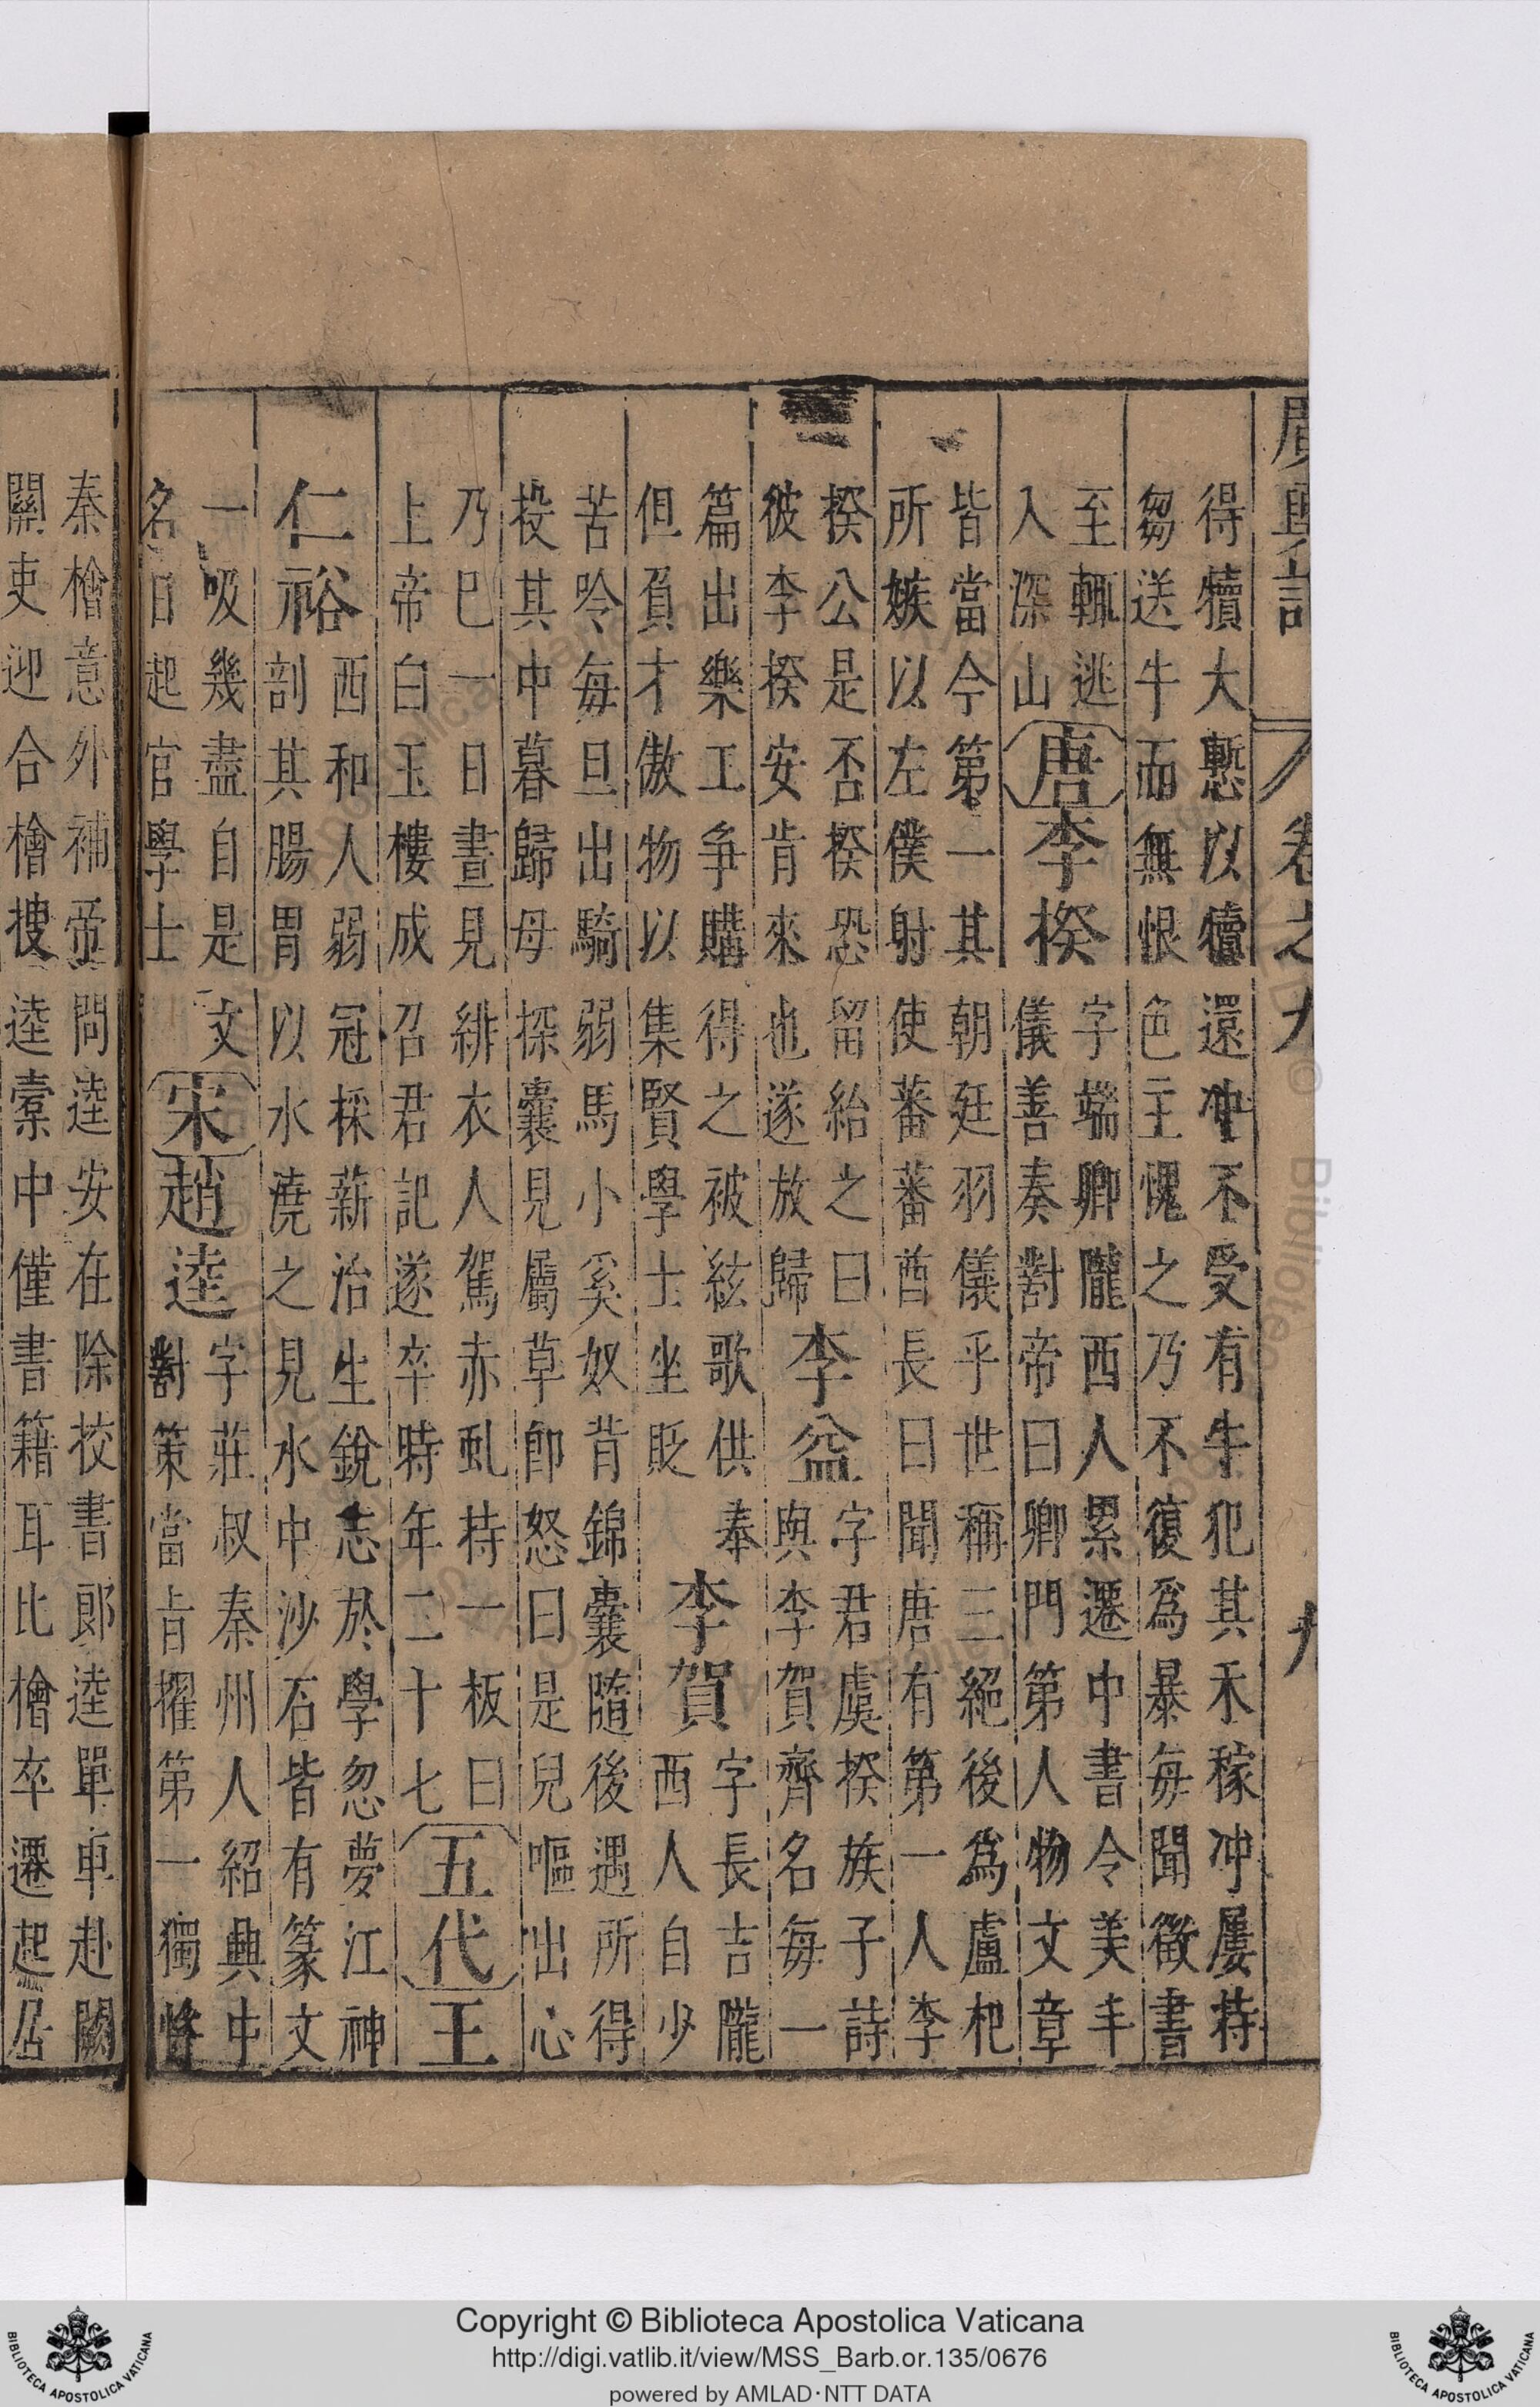 廣輿記 卷之九 九
得犢大慙以犢還冲不受有牛犯其禾稼冲屢持
芻送牛而無恨色主愧之乃不復爲暴每聞徵書
至輒逃
入深山
唐
李揆
字端卿隴西人累遷中書令美丰
儀善奏對帝曰卿門第人物文章
皆當今第一其朝廷羽儀乎世稱三絕後爲盧杞
所嫉以左僕射使蕃蕃酋長曰聞唐有第一人李
揆公是否揆恐留紿之曰
彼李揆安肯來也遂放歸
李益
字君虞揆族子詩
與李賀齊名每一
篇出樂工爭購得之被絃歌供奉
但負才傲物以集賢學士坐貶
李賀
字長吉隴
西人自少
苦吟每旦出騎弱馬小奚奴背錦囊隨後遇所得
投其中暮歸母探囊見屬草卽怒曰是兒嘔出心
乃巳一日晝見緋衣人駕赤虬持一板曰
上帝白玉樓成召君記遂卒時年二十七
五代
王
仁裕
西和人弱冠採薪治生銳志於學忽夢江神
剖其腸胃以水澆之見水中沙石皆有篆文
一吸幾盡自是文
名日起官學士
宋
趙逵
字莊叔秦州人紹興中
對策當旨擢第一獨忤
秦檜意外補帝問逵安在除校書郞逵單車赴闕
關吏迎合檜搜逵橐中僅書籍耳比檜卒遷起居
Copyright © Biblioteca Apostolica Vaticana
http://digi.vatlib.it/view/MSS_Barb.or.135/0676
powered by AMLAD·NTT DATA
BIBLIOTECA APOSTOLICA VATICANA
BIBLIOTECA APOSTOLICA VATICANA